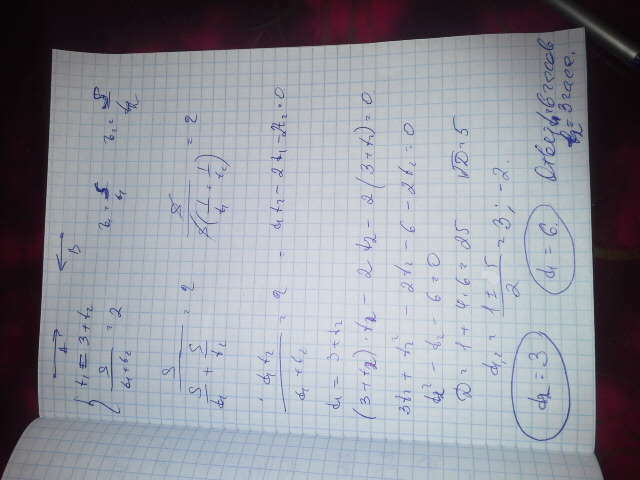 A B
t₁ = 3 + t₂
S / (v₁ + v₂) = 2 v₁ = S / t₁ v₂ = S / t₂
S / (S/t₁ + S/t₂) = 2 S / (S(1/t₁ + 1/t₂)) = 2
t₁ t₂ / (t₁ + t₂) = 2 = t₁t₂ - 2t₁ - 2t₂ = 0
t₁ = 3 + t₂
(3 + t₂) · t₂ - 2 t₂ - 2 (3 + t₂) = 0
3t₂ + t₂² - 2t₂ - 6 - 2t₂ = 0
t₂² - t₂ - 6 = 0
D = 1 + 4·6 = 25 √D = 5
t₁,₂ = (1 ± 5) / 2 = 3; -2.
t₂ = 3 t₁ = 6. Ответ: t₁ = 6 часов
t₂ = 3 часа.